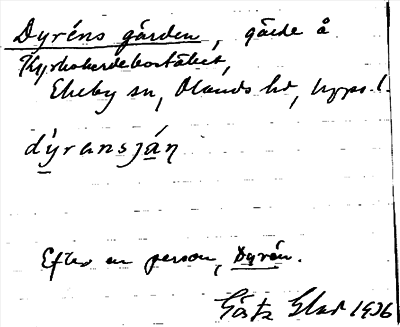 Dyréns gärden, gärde å
Kyrkoherdebostället,
Ekeby sn, Olands hd, Upps. l.
dy̱ransjáṉ
Efter en person, Dyrén.
Gösta Glad 1926